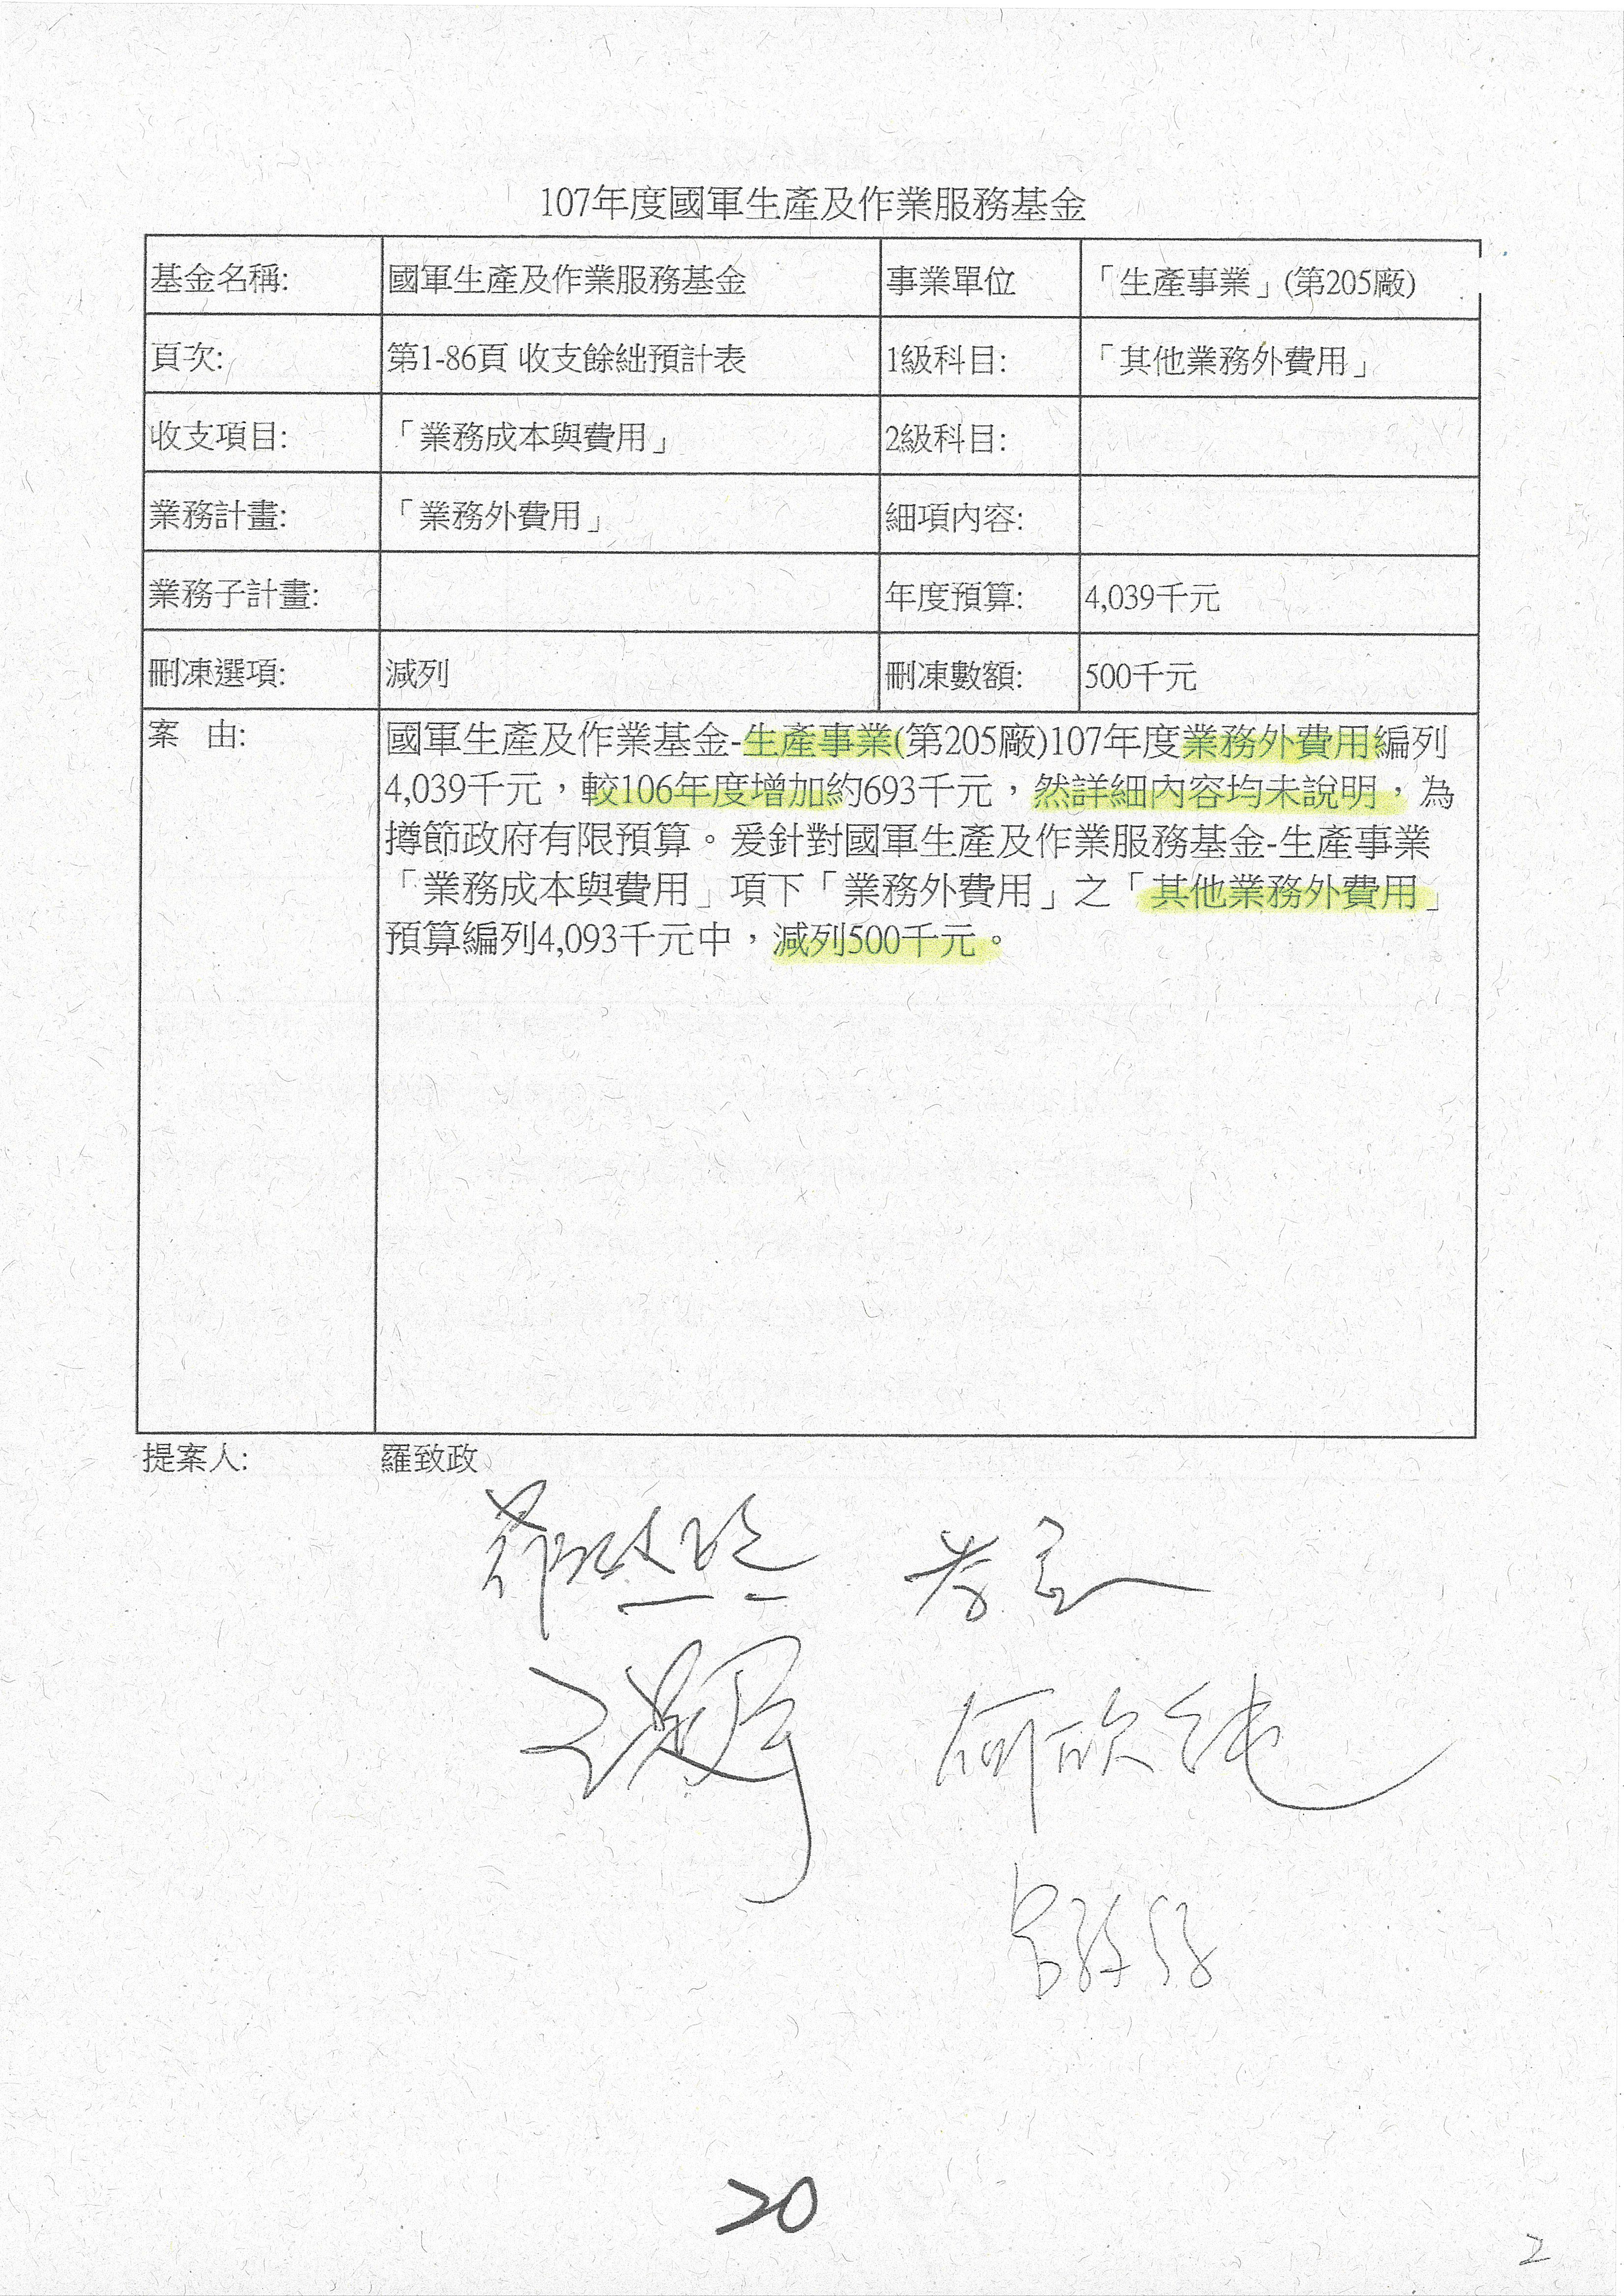 107年度國軍生產及作業服務基金
基金名稱: 國軍生產及作業服務基金 事業單位 「生產事業」(第205廠)
頁次: 第1-86頁 收支餘絀預計表 1級科目: 「其他業務外費用」
收支項目: 「業務成本與費用」 2級科目:
業務計畫: 「業務外費用」 細項內容:
業務子計畫: 年度預算: 4,039千元
刪凍選項: 減列 刪凍數額: 500千元
案 由: 國軍生產及作業基金-生產事業(第205廠)107年度業務外費用編列
4,039千元，較106年度增加約693千元，然詳細內容均未說明，為
撙節政府有限預算。爰針對國軍生產及作業服務基金-生產事業
「業務成本與費用」項下「業務外費用」之「其他業務外費用」
預算編列4,093千元中，減列500千元。
提案人: 羅致政
何欣純
20
2